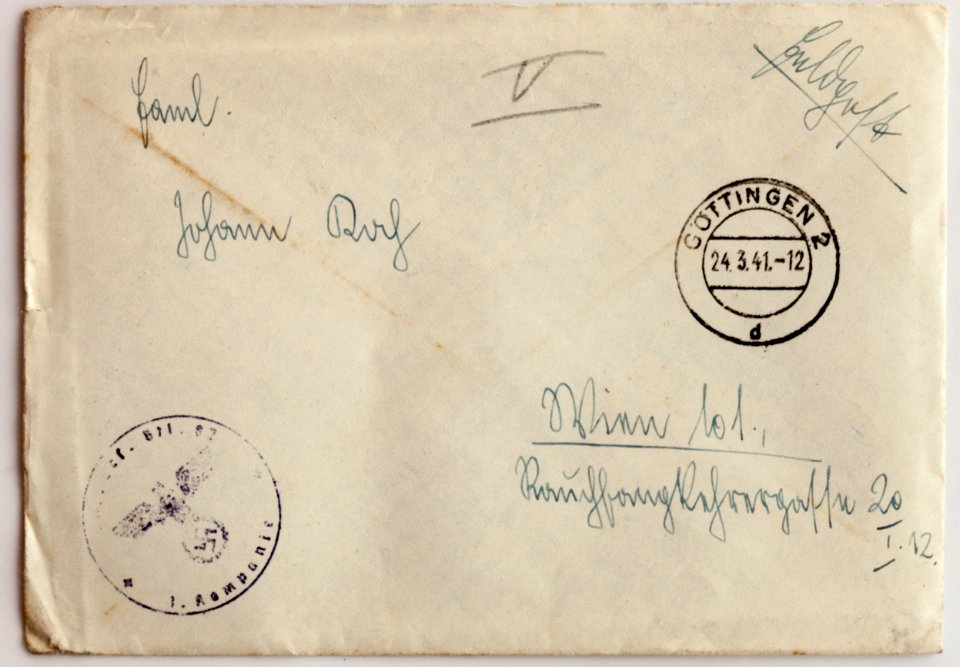 Feldpost
V
Faml.
Johann Roch
GÖTTINGEN 2
24.3.41.-12
d
Wien 101.,
Rauchfangkehrergasse 20
I. 12.
Btl.
1. Kompanie